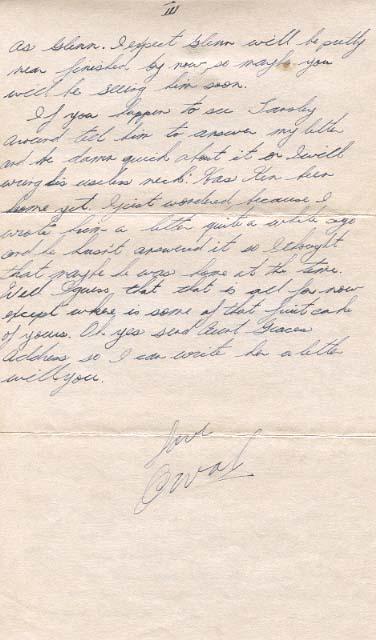 III
as Glenn. I expect Glenn will be pretty
near finished by now, so maybe you
will be seeing him soon.
If you happen to see Tansley
around tell him to answer my letter
and be damn quick about it or I will
wring his useless neck. Has Ken been
home yet. I just wondered because I
wrote him a letter quite a while ago
and he hasn't answered it so I thought
that maybe he was home at the time.
Well I guess that that is all for now
except where is some of that fruit cake
of yours. Oh yes send Aunt Graces
Address so I can write her a letter
will you.
Love
Orval